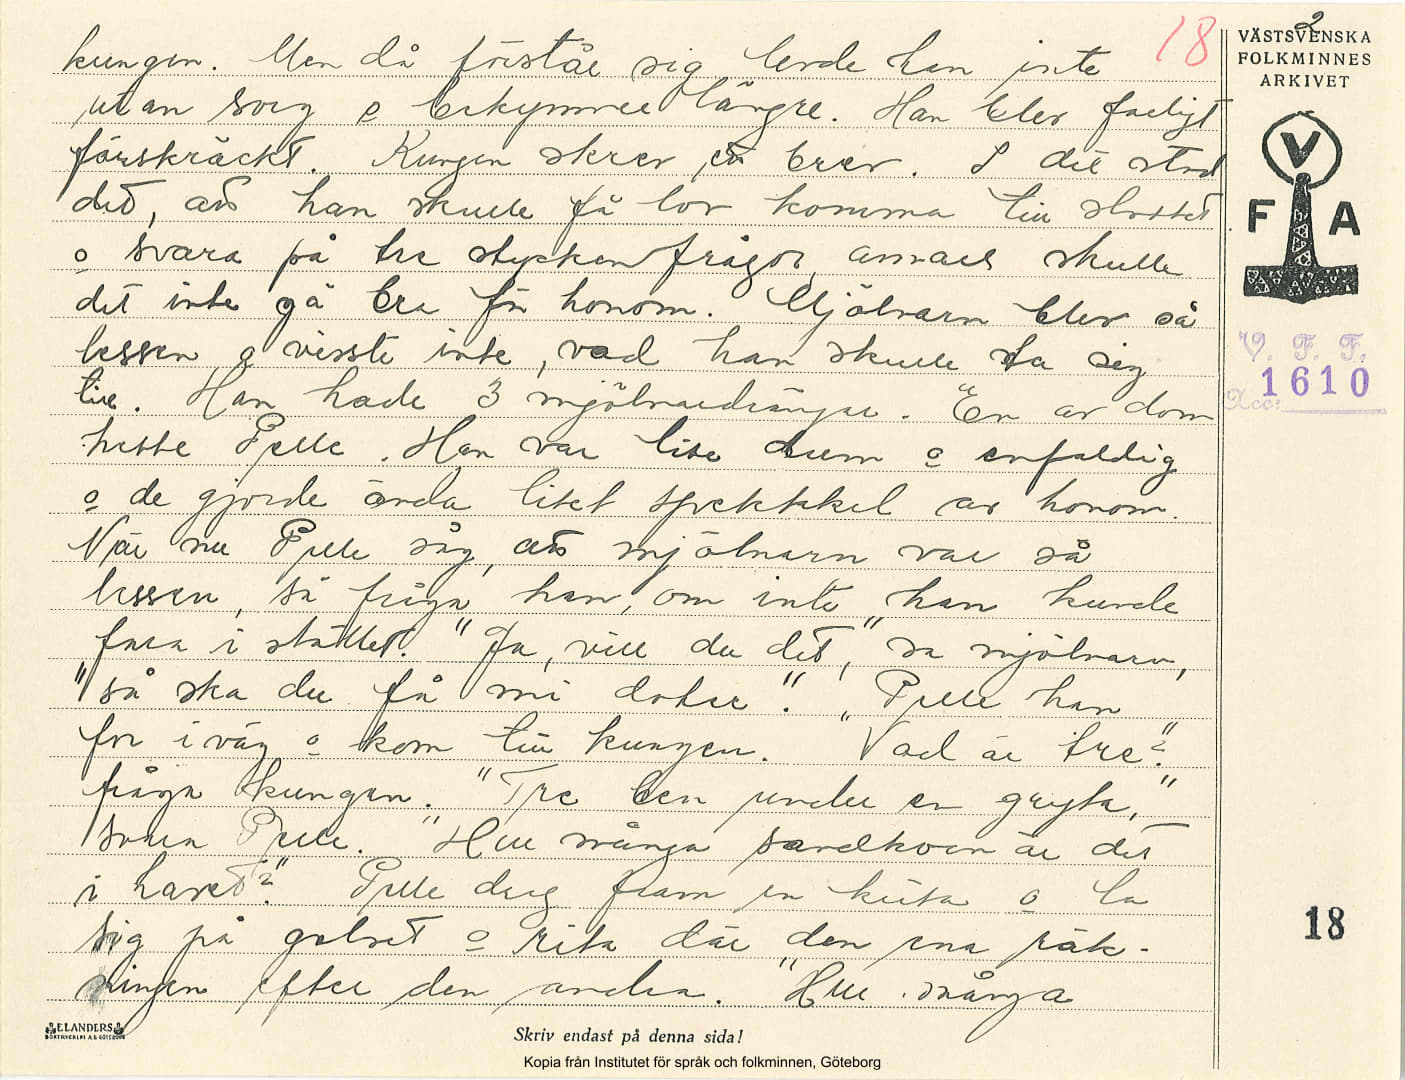 18
2
VÄSTSVENSKA
FOLKMINNES
ARKIVET
V
F A
V. F. F.
1610
Acc:
kungen. Men då förstår sig levde han inte
utan sorg o bekymmer längre. Han blev farligt
förskräckt. Kungen skrev ett brev. I det stod
det, att han skulle få lov komma till slottet
o svara på tre stycken frågor, annars skulle
det inte gå bra för honom. Mjölnarn blev så
lessen o visste inte, vad han skulle ta sig
till. Han hade 3 mjölnardrängar. En av dom
hette Pelle. Han var lite dum o enfaldig
o de gjorde ända litet spektakel av honom.
När nu Pelle såg, att mjölnarn var så
lessen, så fråga han, om inte han kunde
fara i stället. "Ja, vill du det," sa mjölnarn,
"så ska du få mi dotter." Pelle han
for iväg o kom till kungen. "Vad är tre?"
fråga kungen. "Tre ben under en gryta,"
svara Pelle. "Hur många sandkorn är det
i havet?" Pelle drog fram en krita o la
sig på golvet o rita där den ena räk-
ningen efter den andra. "Hur många
18
ELANDERS
BOKTRYCKERI A.B. GÖTEBORG
Skriv endast på denna sida!
Kopia från Institutet för språk och folkminnen, Göteborg